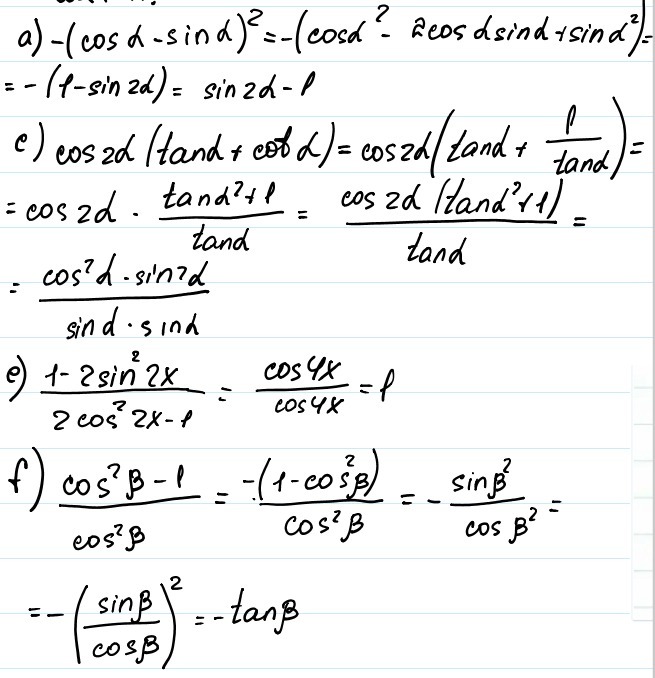 a) -(cos α - sin α)² = -(cosα² - 2cos α sin α + sin α²) =
= -(1 - sin 2α) = sin 2α - 1
c) cos 2α (tanα + cot α) = cos 2α (tanα + 1/tanα) =
= cos 2α · (tanα² + 1)/tanα = cos 2α (tanα² + 1)/tanα =
= (cos² α - sin² α)/(sin α · sin α)
e) (1 - 2 sin² 2x)/(2 cos² 2x - 1) = cos 4x/cos 4x = 1
f) (cos² β - 1)/cos² β = -(1 - cos² β)/cos² β = - sin β²/cos β² =
= -(sin β/cos β)² = - tan β